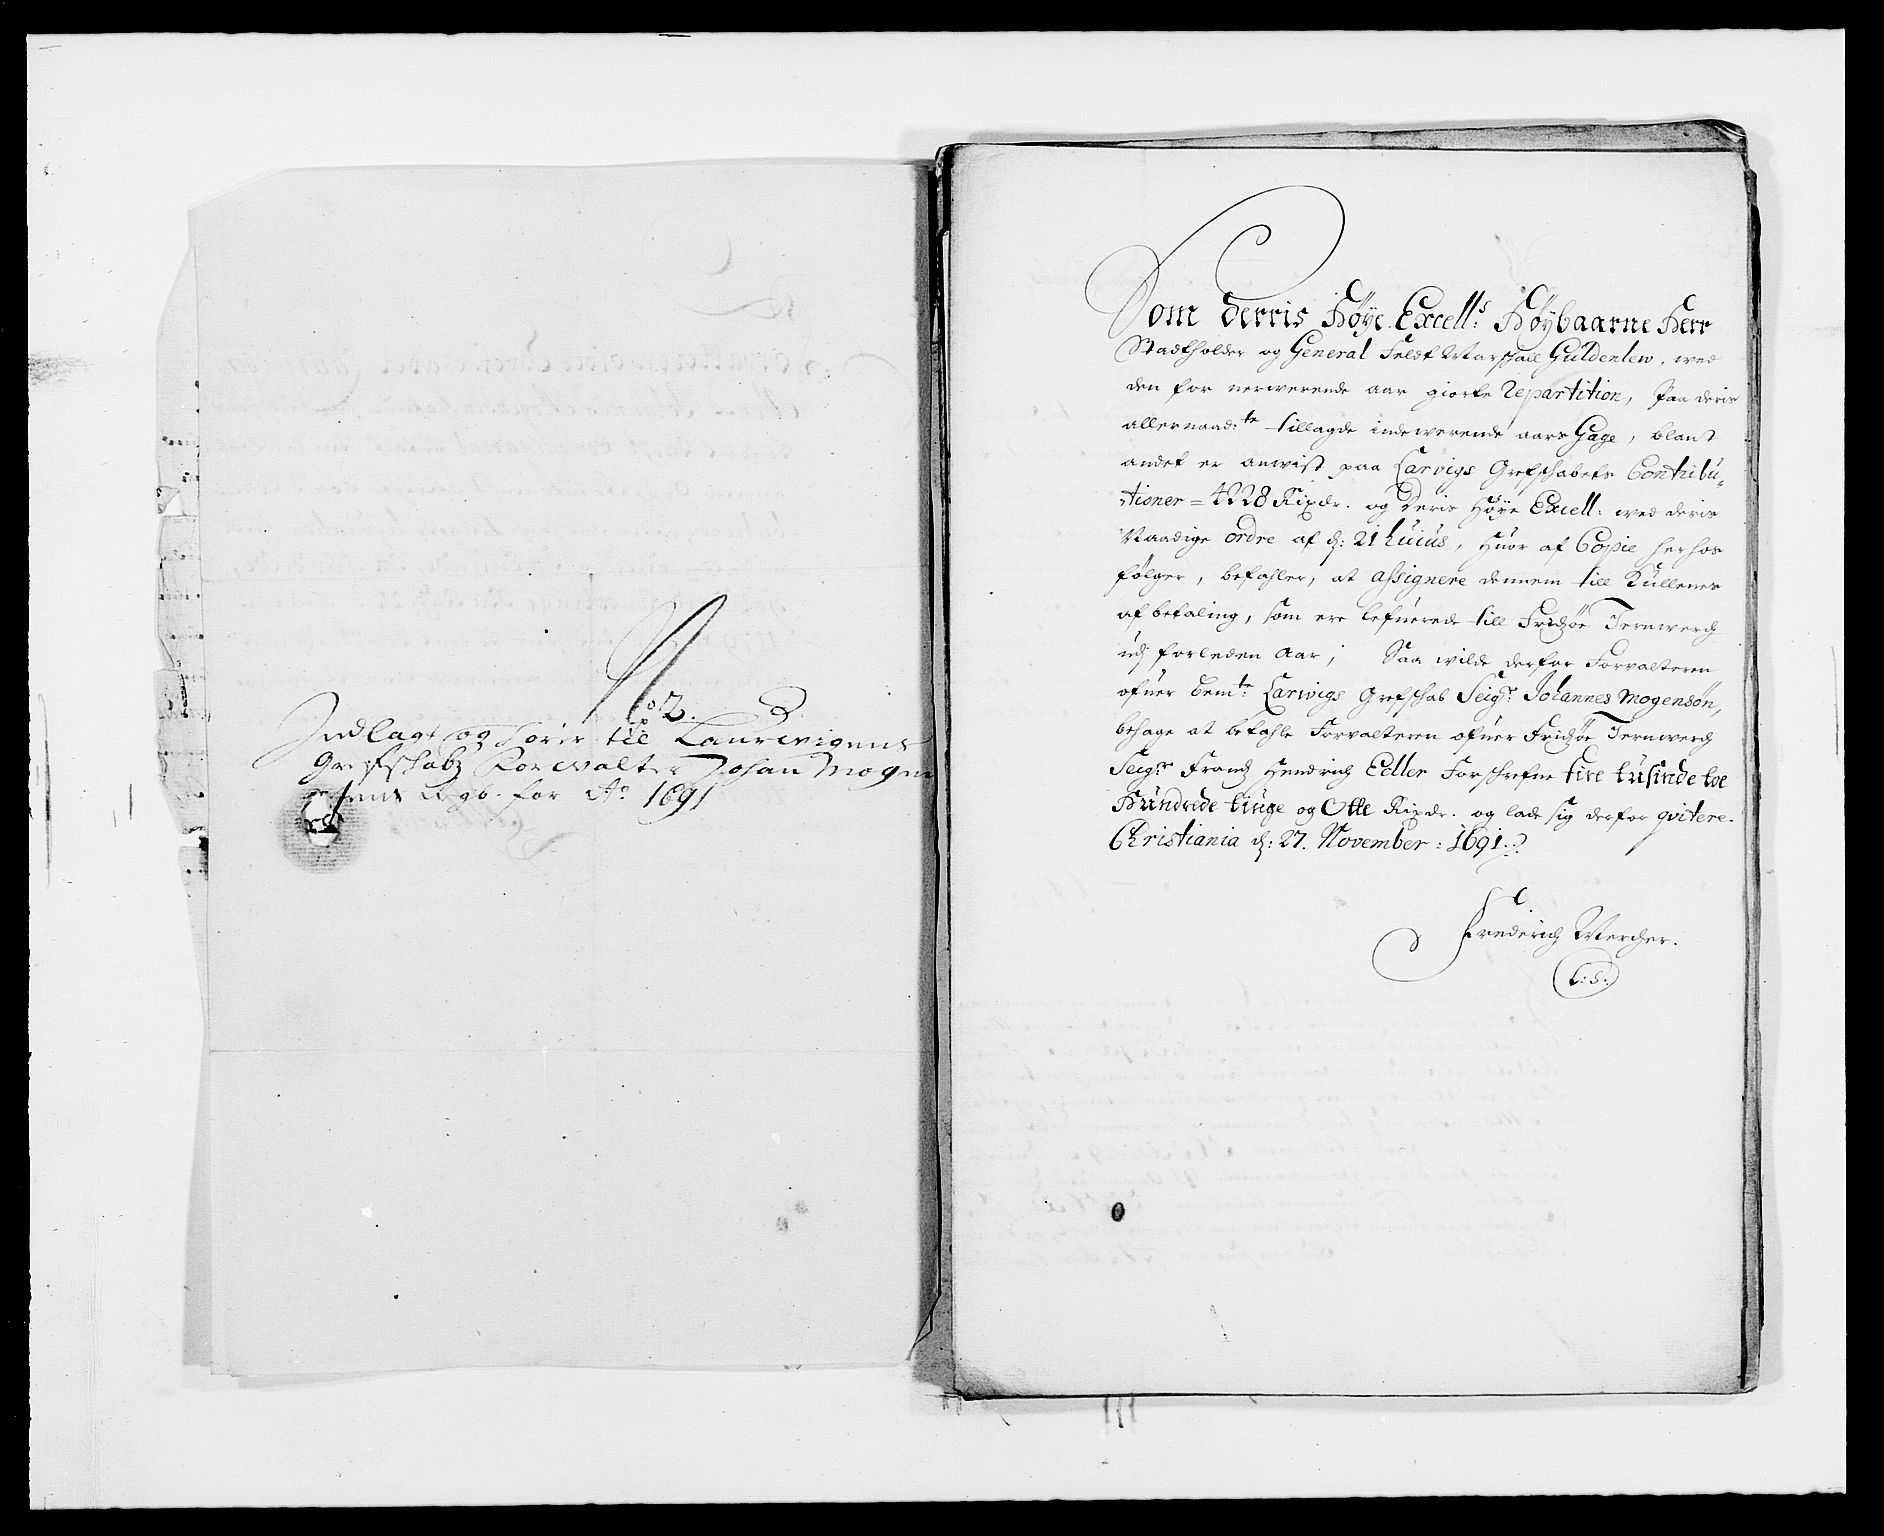 No 2.
Indlagt og hører til Laurwigens
Grefskabs Forwalter Johan Mogen
sens Regb. for Ao 1691
Som Derris Høye Excell:s Høybaarne Herr
Stadtholder og General Feldt Marschall Guldenlew, wed
den for nerwerende aar giorte repartition, Paa deris
allernaad:te tillagde indewerende aars Gage, blant
andet er anwist paa Larvigs Grefschabets Contribu-
tioner = 4228 Rixdr. og Deris Høye Excell: wed deris
Naadige ordre af d: 21 huius, Huor af Copie herhos
følger, befahler, at assignere dennem till Kullenes
af betaling, som ere lefuerede till Fridzøe Jernwerch
udj forleden Aar; Saa wilde derfor Forvalteren
ofuer bem:te Larwigs Grefschab Seig:r Johannes Mogensøn,
behage at befahle Forvalteren ofuer Fridzøe Jernwerch
Seig:r Frandz Hendrich Edler Forschrefne fire tusinde toe
Hundrede tiuge og Otte Rixdr. og lade sig derfor qvitere.
Christiania d: 27. November: 1691.
Frederich Wercher.
L:S: